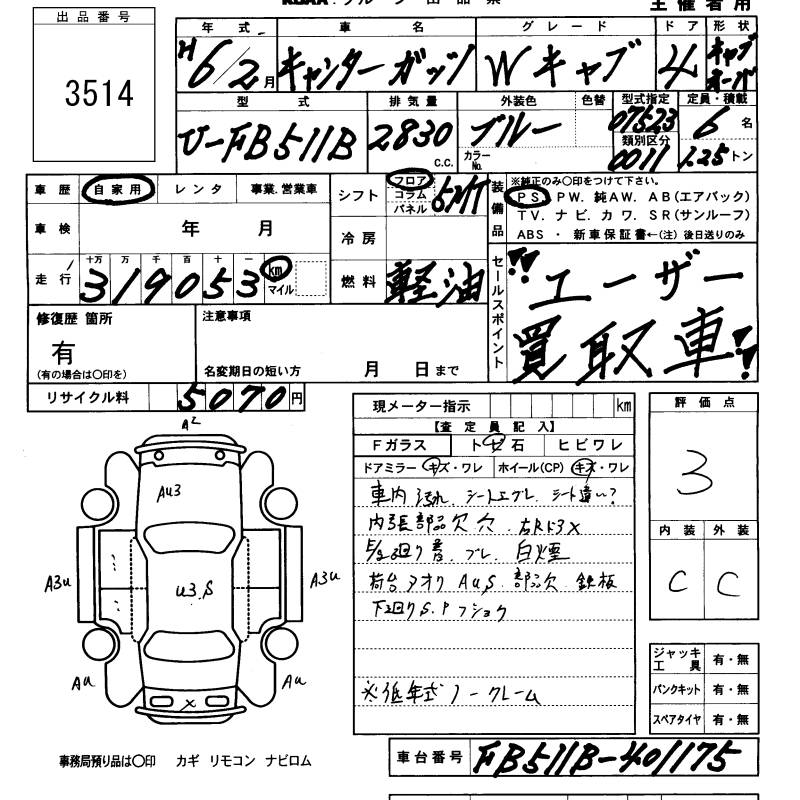 主催者用
出品番号
3514
年式 車名 グレード ドア 形状
H6/2月 キャンターガッツ Wキャブ 4 キャブオーバ
型式 排気量 外装色 色替 型式指定 定員・積載
U-FB511B 2830 c.c. ブルー カラーNo. 07523 6名
類別区分
0011 1.25トン
車歴 自家用 レンタ 事業.営業車
シフト フロア コラム パネル 5MT
装備品 ※純正のみ〇印をつけて下さい。
PS. PW. 純AW. AB(エアバック)
TV. ナビ. カワ. SR(サンルーフ)
ABS ・ 新車保証書←(注) 後日送りのみ
車検 年 月
冷房
走行 十万 万 千 百 十 一
319053 km マイル
燃料 軽油
セールスポイント
"ユーザー
買取車"
修復歴 箇所
有
(有の場合は〇印を)
注意事項
名変期日の短い方 月 日まで
リサイクル料 5070円
現メーター指示 km
【査定員記入】
Fガラス トビ石 ヒビワレ
ドアミラー キズ・ワレ ホイール(CP) キズ・ワレ
車内 汚れ. シートエグレ. シート違い?
内張部品欠 穴. 右Rドア X
白煙
荷台アオリ AUS. 部品欠. 鉄板
下廻りS.P
※低年式ノークレーム
評価点
3
内装 外装
C C
A2
AU3
U3.S
A3U
A3U
AU
AU
X
ジャッキ工具 有・無
パンクキット 有・無
スペアタイヤ 有・無
事務局預り品は〇印 カギ リモコン ナビロム
車台番号 FB511B-401175